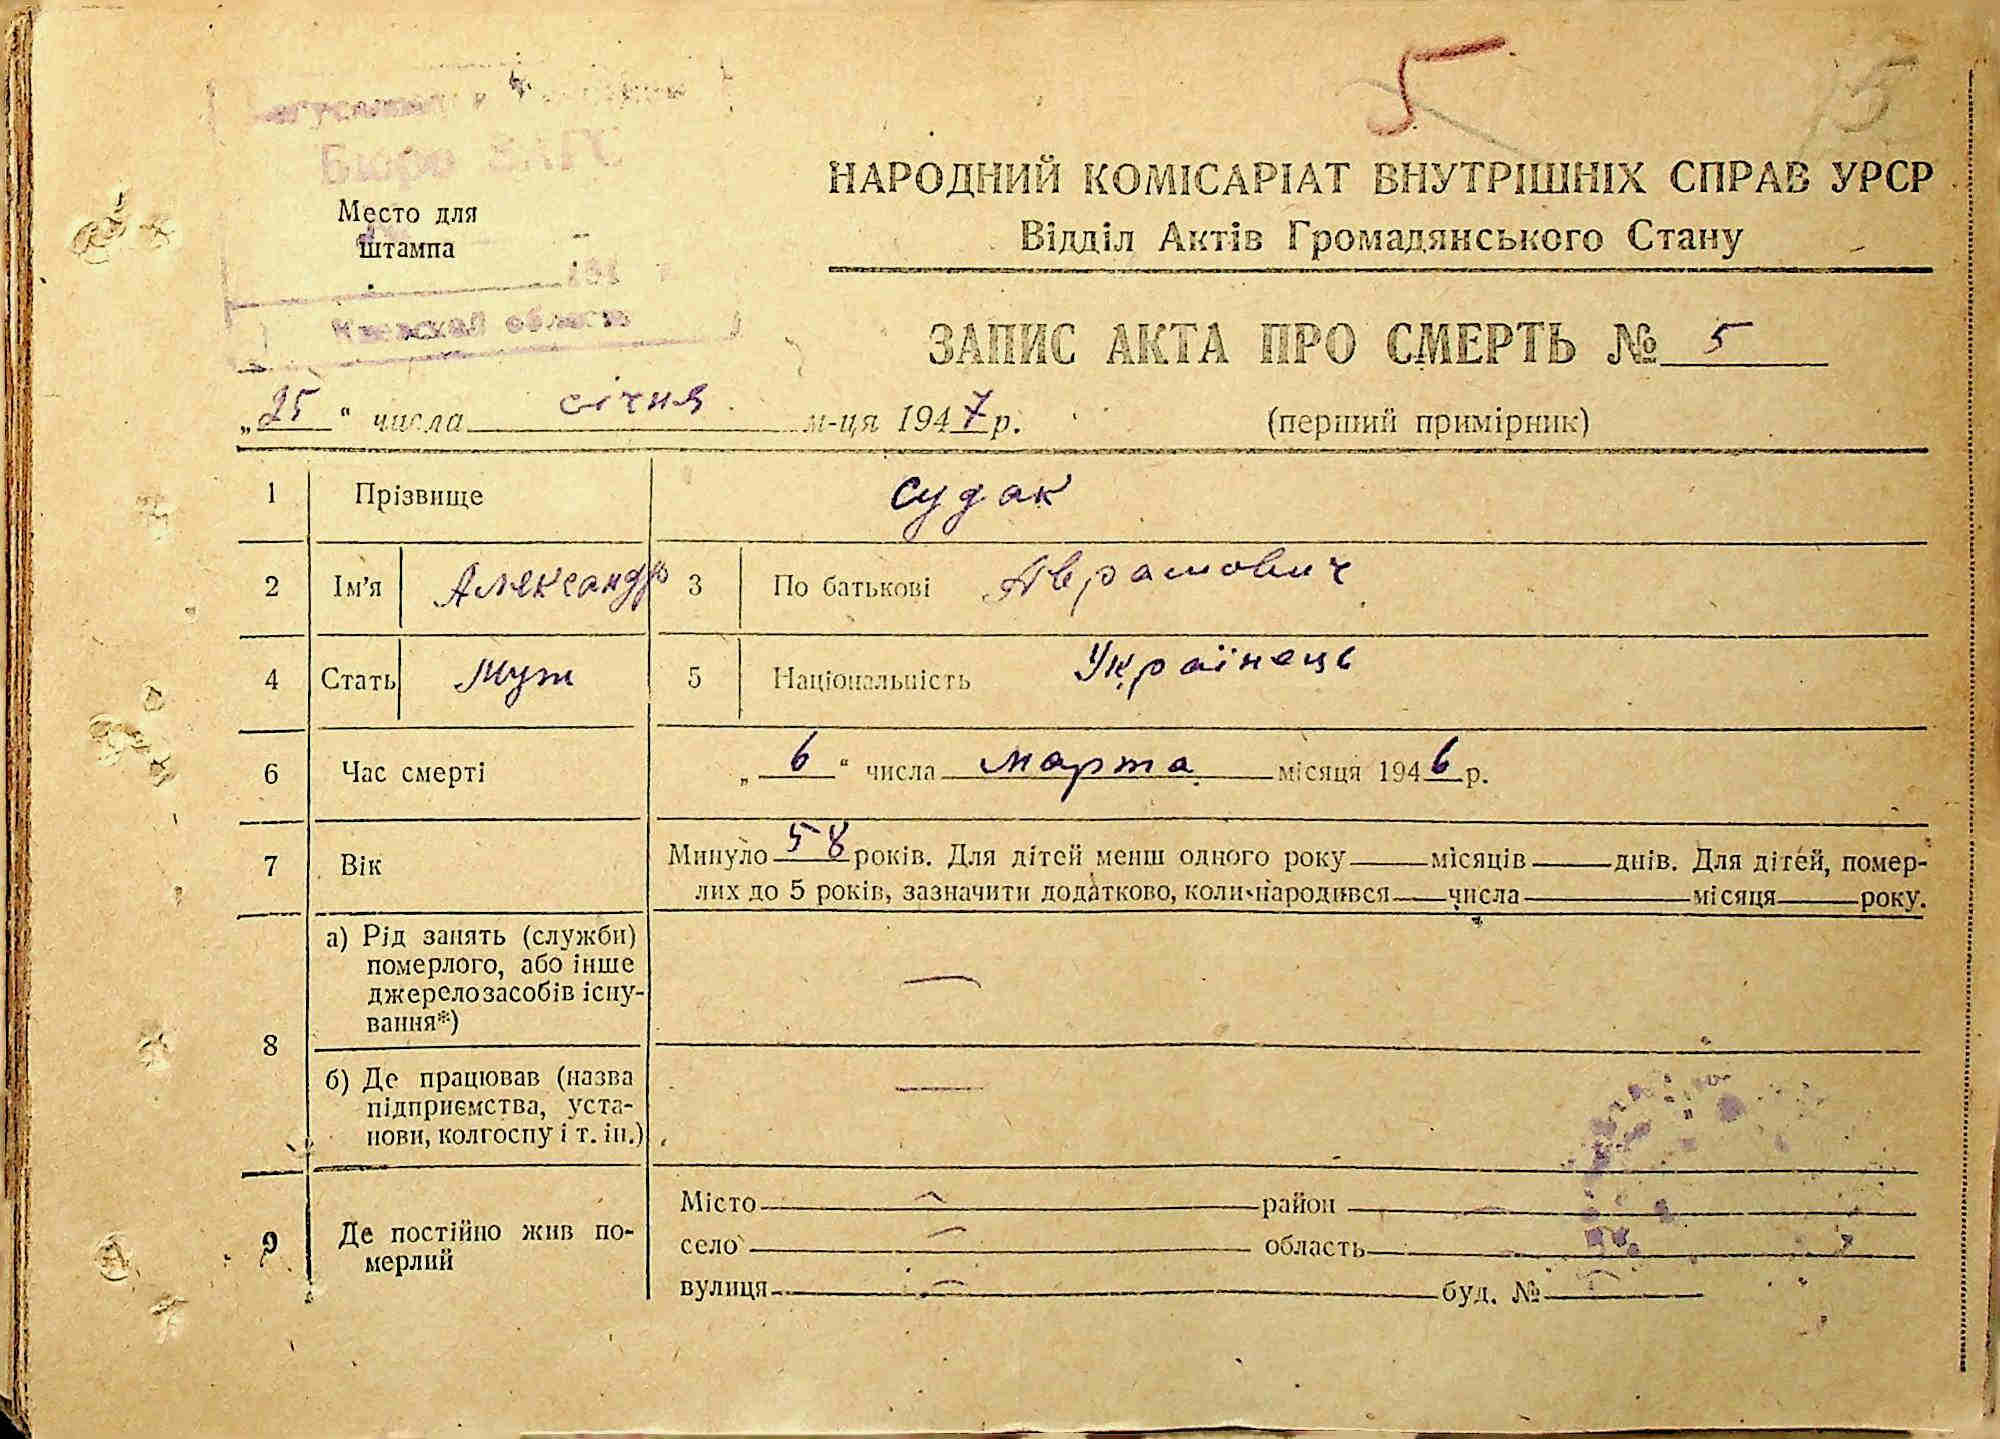 5
5
Бюро ЗАГС
Место для
штампа
194 г.
Киевской области
НАРОДНИЙ КОМІСАРІАТ ВНУТРІШНІХ СПРАВ УРСР
Відділ Актів Громадянського Стану
ЗАПИС АКТА ПРО СМЕРТЬ № 5
„25“ числа січня м-ця 1947 р. (перший примірник)
1 Прізвище Судак
2 Ім'я Александр 3 По батькові Аврамович
4 Стать Муж 5 Національність Українець
6 Час смерті „6“ числа марта місяця 1946 р.
7 Вік Минуло 58 років. Для дітей менш одного року — місяців — днів. Для дітей, помер-
лих до 5 років, зазначити додатково, коли народився — числа — місяця — року.
8 а) Рід занять (служби) —
померлого, або інше
джерело засобів існу-
вання*)
б) Де працював (назва —
підприємства, уста-
нови, колгоспу і т. ін.)
9 Де постійно жив по-
мерлий
Місто — район —
село — область —
вулиця — буд. № —